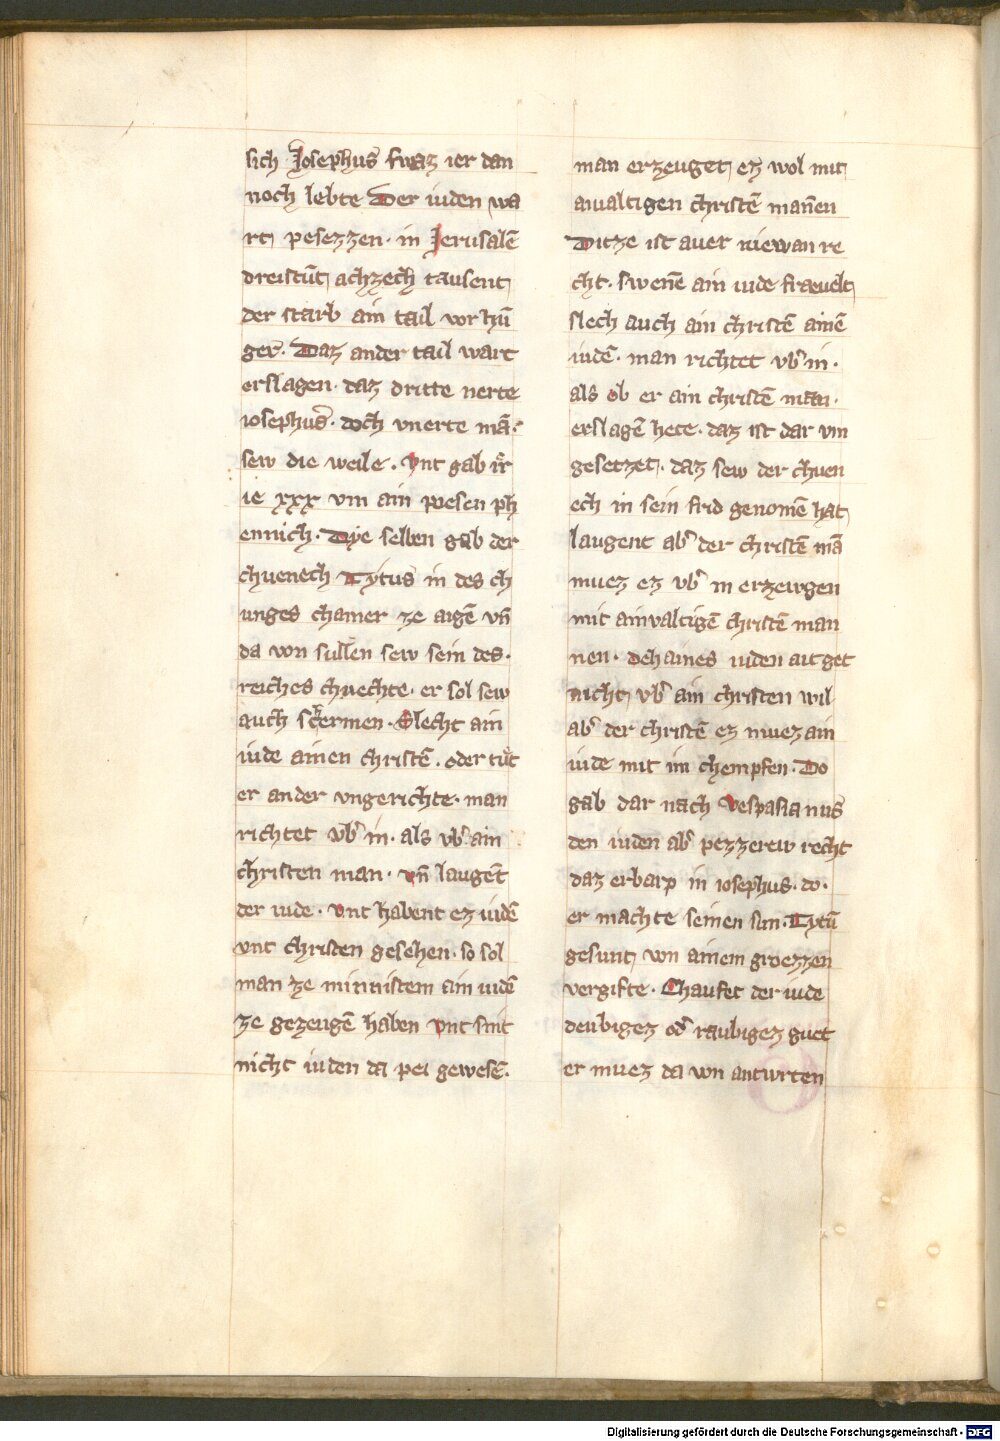 sich Josephus swaz ier dan
noch lebte Der iuden wa
rt pesezzen · in Jerusalē
dreistūt achzech tausent
der starb ain tail vor hū
ger · Daz ander tail wart
erslagen · daz dritte nerte
iosephus · doch vnerte mā ·
sew die weile · vnt gab ir
ie xxx vm ain poesen ph
ennich · Dye selben gab der
chuenech Tytus in des ch
unges chamer ze aigē vn̄
da von sullen sew sein des ·
reiches chnechte · er sol sew
auch schermen · Slecht ain
iude ainen christē · oder tuͤt
er ander vngerichte · man
richtet vb̾ in · als vb̾ ain
christen man · vn̄ laugēt
der iude · vnt habent ez iudē
vnt christen gesehen · so sol
man ze minnistem ain iudē
ze gezeugē haben vnt sint
nicht iuden da pei gewesē ·
man erzeuget ez wol mit
ainaltigen christē man̄en
Ditze ist auer niewan re
cht · swenē ain iude fraeuelt
slech auch ain christē ainē
iudē · man richtet vb̾ in ·
als ob er ain christē man ·
erslagē hete · daz ist dar vm
gesetzet · daz sew der chuen
ech in sein frid genomē hat
laugent ab̾ der christē mā
muez ez vb̾ in erzeugen
mit ainvaltigē christē man
nen · dehaines iuden ait get
nicht vb̾ ain christen wil
ab̾ der christē ez muez ain
iude mit im chempfen · Do
gab dar nach vespasianus
den iuden ab̾ pezzerew recht
daz erbarp in iosephus · do ·
er machte seinen sun · Tytū
gesunt von ainem groezzen
vergifte · Chaufet der iude
deubigez od̾ raubigez guet
er muez da von antwrten
Digitalisierung gefördert durch die Deutsche Forschungsgemeinschaft - DFG